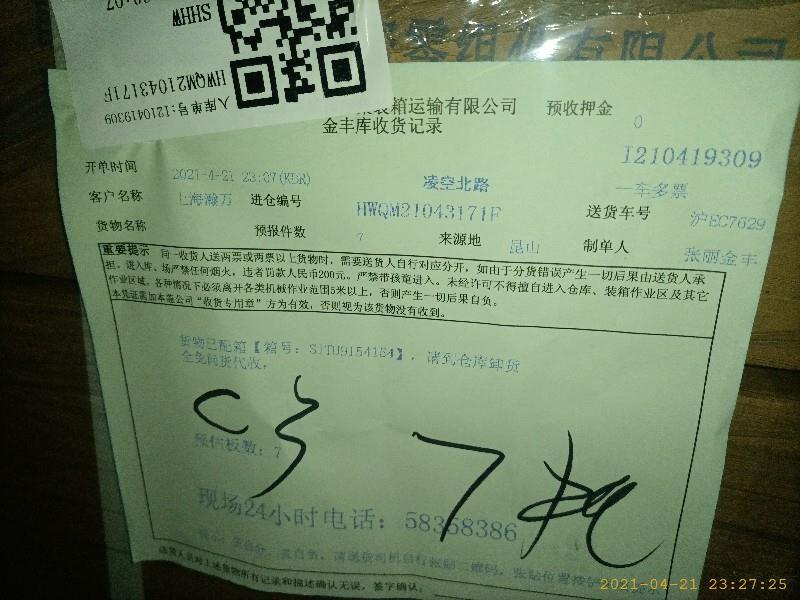 SHHW
HWQM21043171F
入库单号:I210419309
零组件有限公司
装箱运输有限公司
预收押金 0
金丰库收货记录
I210419309
开单时间 2021-4-21 23:07(KDR) 凌空北路 一车多票
客户名称 上海瀚万 进仓编号 HWQM21043171F 送货车号 沪EC7629
货物名称 预报件数 7 来源地 昆山 制单人 张丽金丰
重要提示 同一收货人送两票或两票以上货物时，需要送货人自行对应分开，如由于分货错误产生一切后果由送货人承
担。进入库、场严禁任何烟火，违者罚款人民币200元。严禁带孩童进入。未经许可不得擅自进入仓库、装箱作业区及其它
作业区域，各种情况下必须离开各类机械作业范围5米以上，否则产生一切后果自负。
本凭证需加本盖公司“收货专用章”方为有效，否则视为该货物没有收到。
货物已配箱【箱号：SJTU9154164】，请到仓库卸货
C3
预估板数：7
7 托
现场24小时电话：58358386
送货人员对上述货物所有记录和描述确认无误，签字确认：
2021-04-21 23:27:25